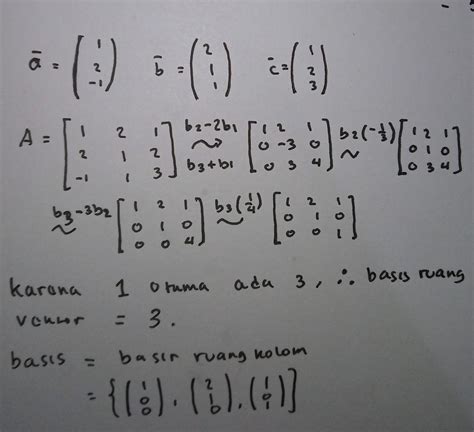 ā = (1 2 -1) b̄ = (2 1 1) c̄ = (1 2 3)
A = [1 2 1; 2 1 2; -1 1 3] b2-2b1 b3+b1 ~ [1 2 1; 0 -3 0; 0 3 4] b2(-1/3) ~ [1 2 1; 0 1 0; 0 3 4]
b3-3b2 ~ [1 2 1; 0 1 0; 0 0 4] b3(1/4) ~ [1 2 1; 0 1 0; 0 0 1]
karena 1 utama ada 3, ∴ basis ruang
vektor = 3.
basis = basis ruang kolom
= {(1 0 0), (2 1 0), (1 0 1)}